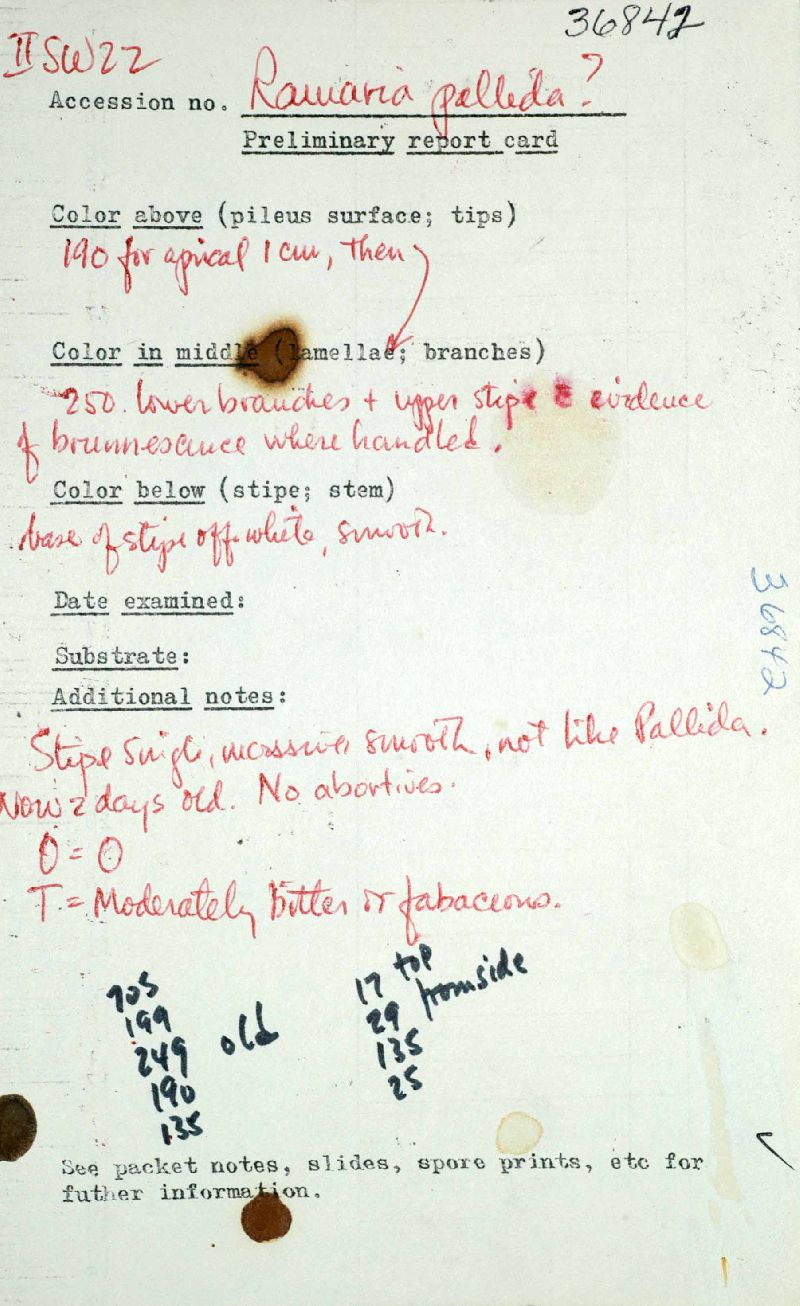 36842
II SW22
Accession no. Ramaria pallida?
Preliminary report card
Color above (pileus surface; tips)
190 for apical 1 cm, then
Color in middle (lamellae; branches)
250. lower branches + upper stipe c̄ evidence
of brunnescence where handled.
Color below (stipe; stem)
base of stipe off-white, smooth.
Date examined:
36842
Substrate:
Additional notes:
Stipe single, massive, smooth, not like Pallida.
Now 2 days old. No abortives.
O = O
T = Moderately bitter or fabaceous.
205
199
249 old
190
135
17 top
29 from side
135
25
See packet notes, slides, spore prints, etc for
futher information.